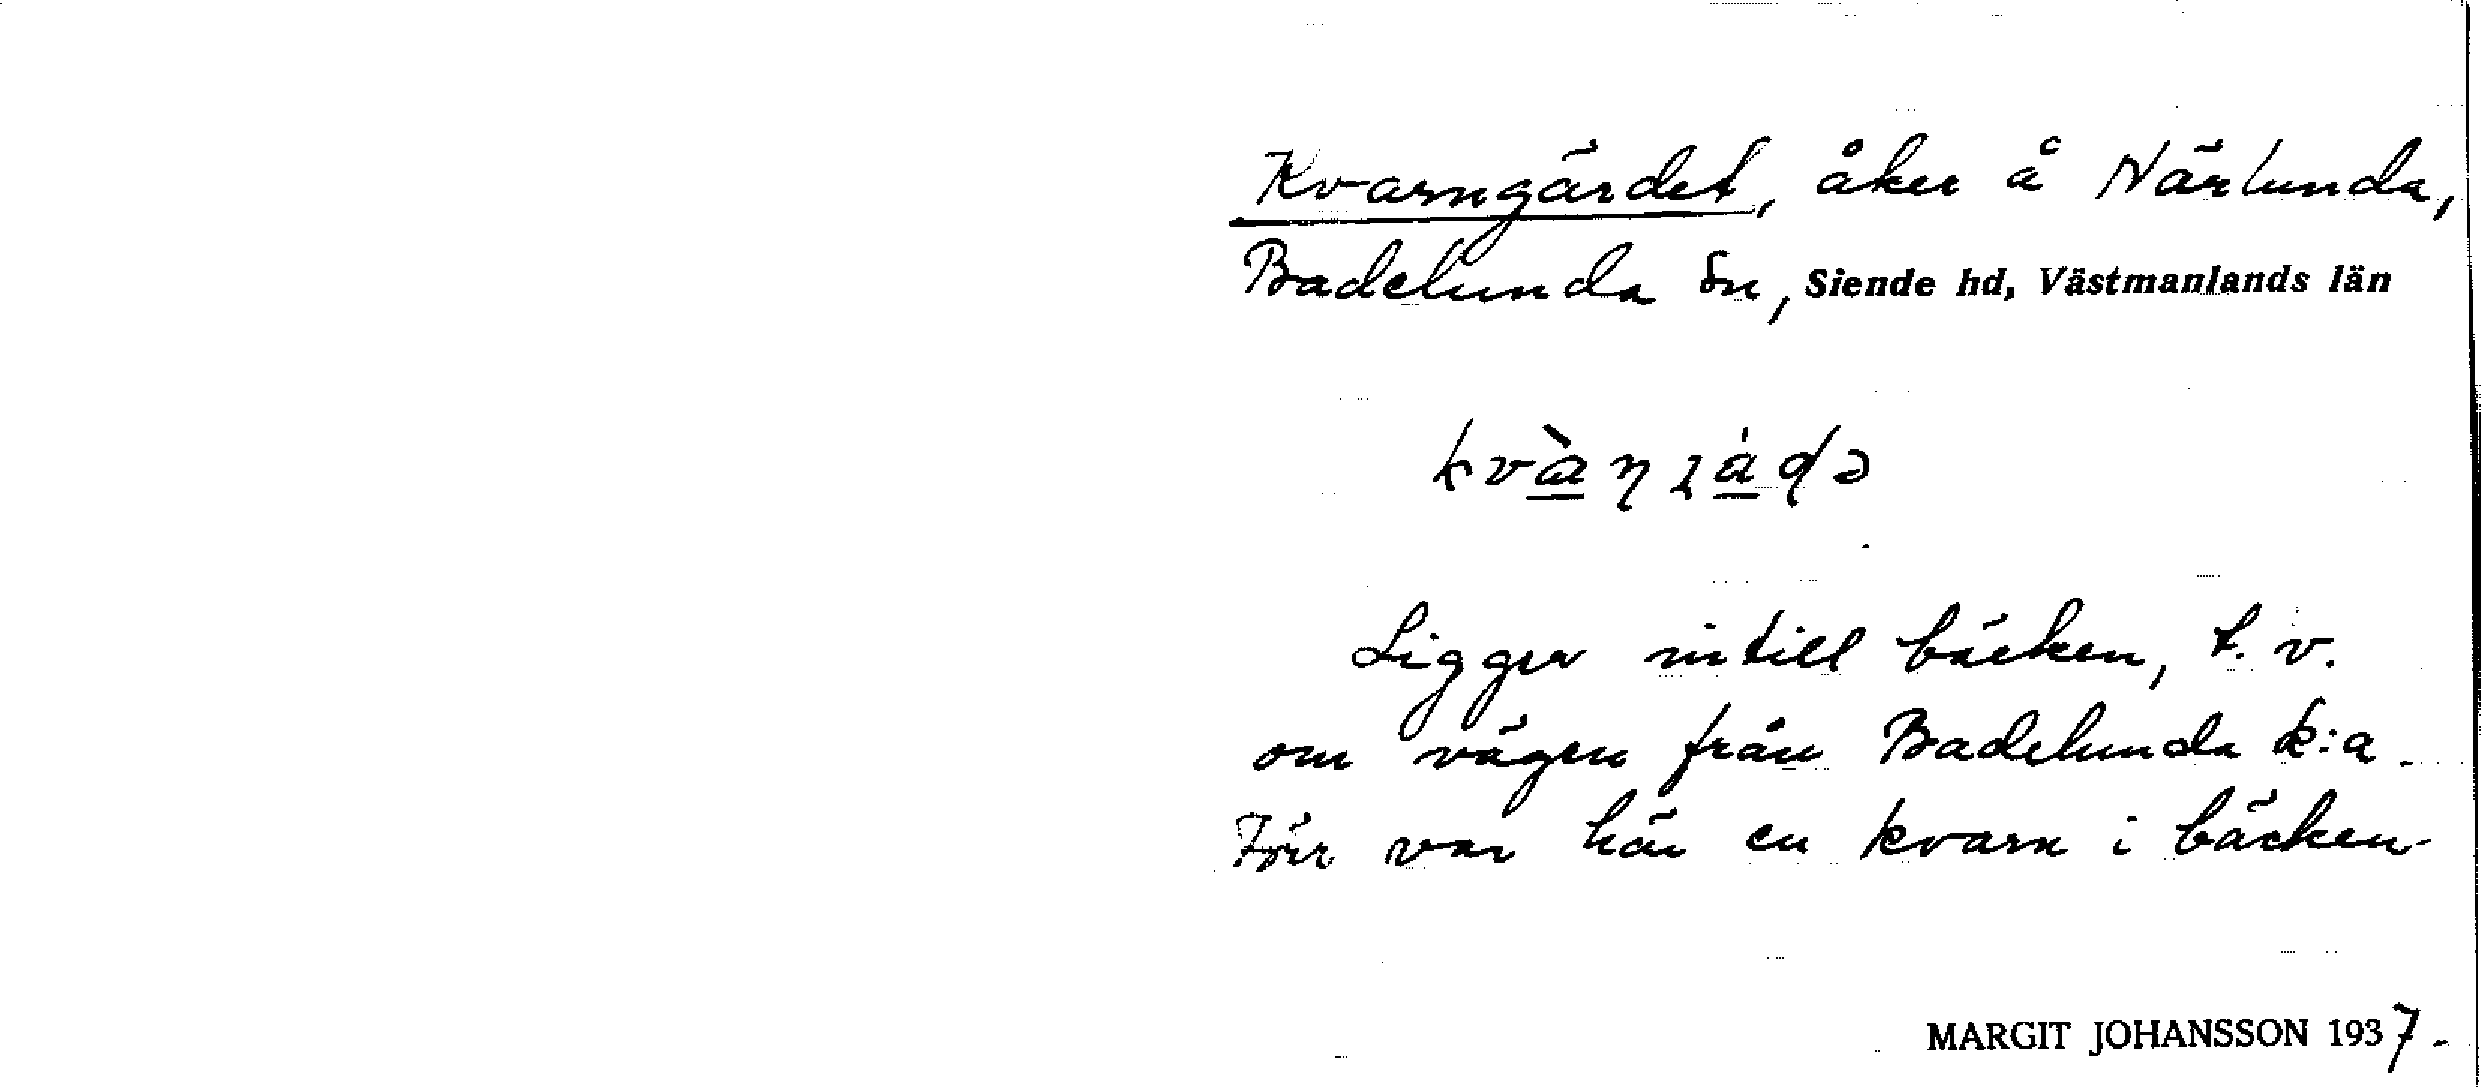 Kvarngärdet, åker å Närlunda,
Badelunda sn, Siende hd, Västmanlands län
Ligger intill bäcken, t. v.
om vägen från Badelunda k:a.
Förr var här en kvarn i bäcken
MARGIT JOHANSSON 1937.